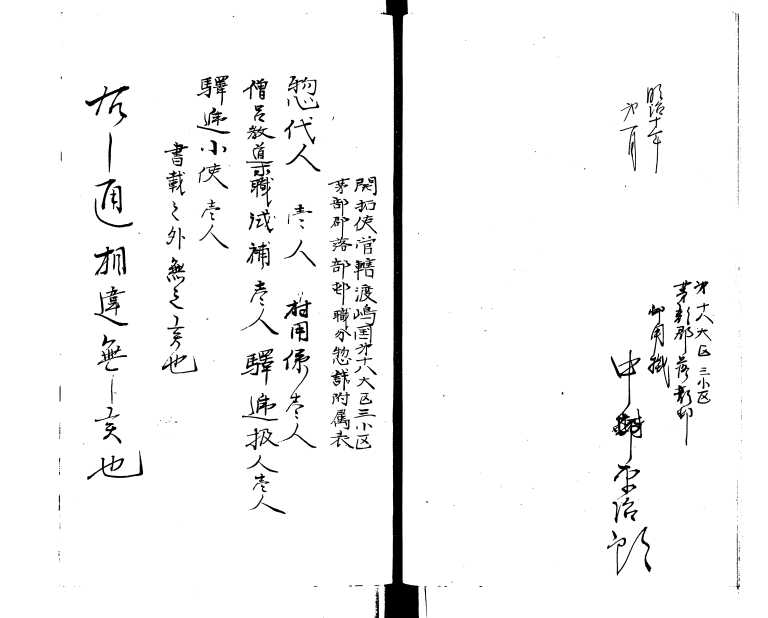 明治十年
第一月
第十八大区三小区
茅部郡落部村
御用掛
中村 治郎
開拓使管轄渡嶋国第十八大区三小区
茅部郡落部邨職分惣計附属表
惣代人 壱人 村用係壱人
僧呂教道職試補壱人 驛逓扱人壱人
驛逓小使壱人
書載之外無之亥也
右之通相違無之亥也